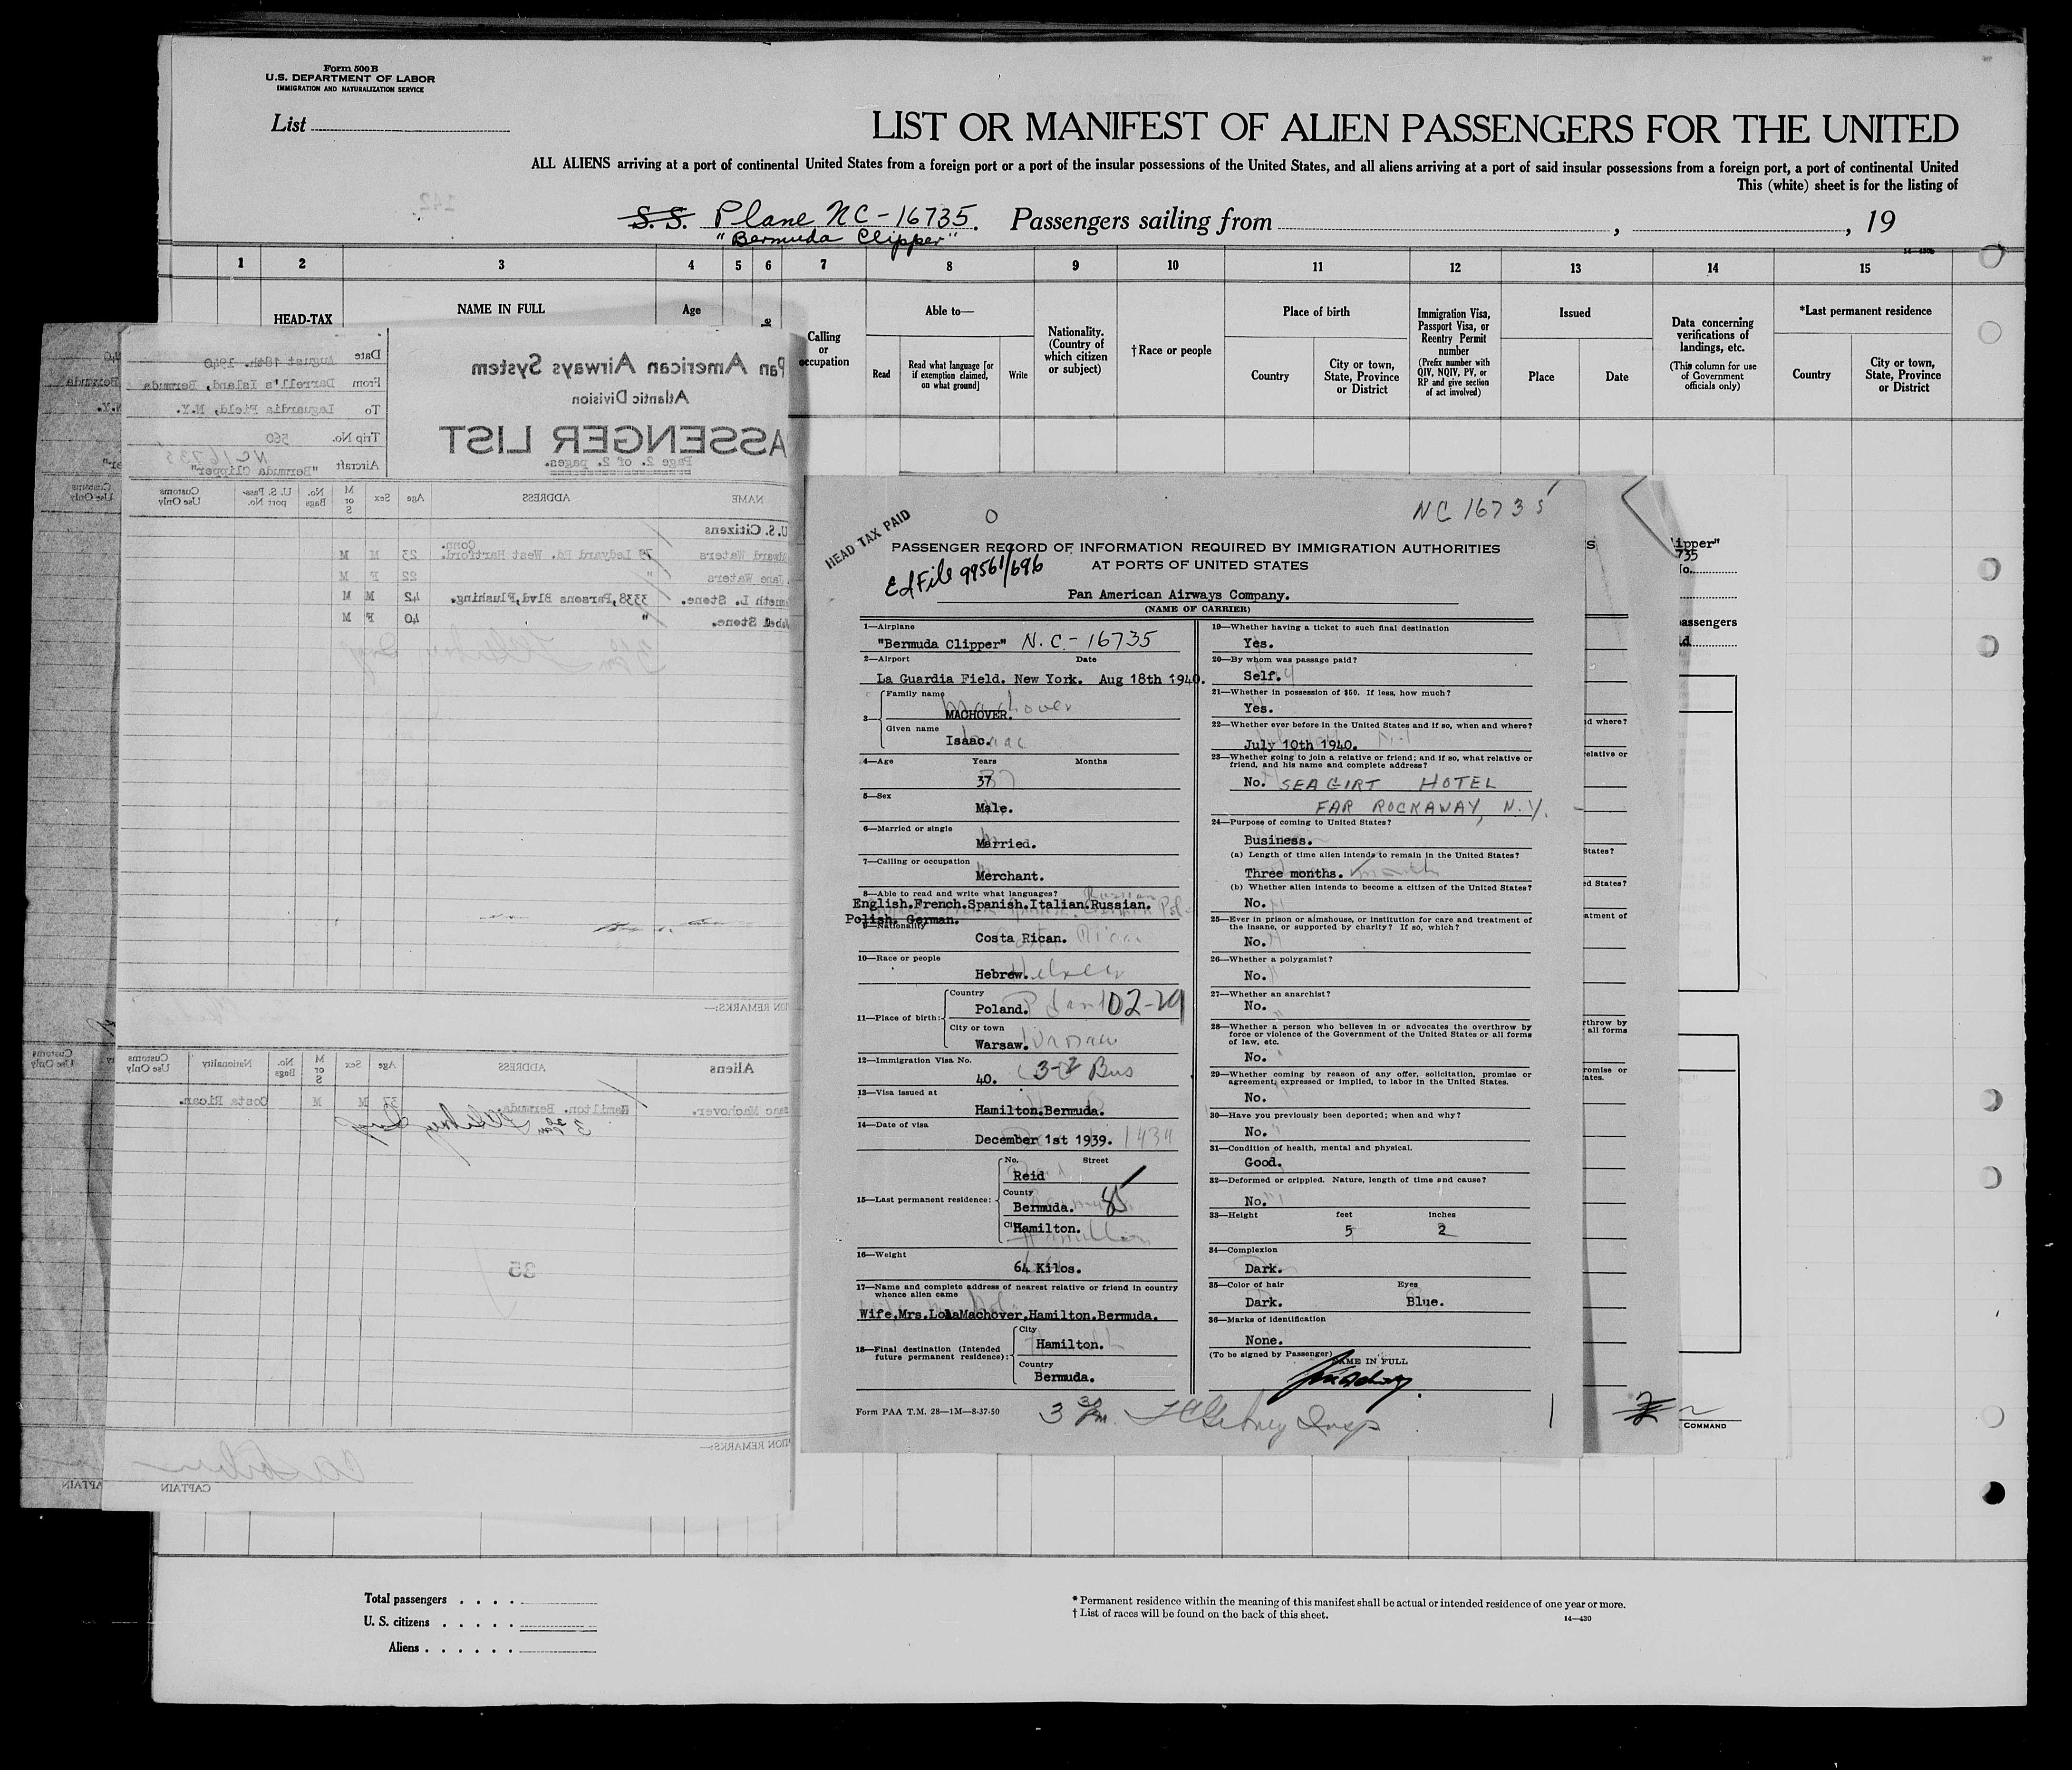 Form 500 B
U.S. DEPARTMENT OF LABOR
IMMIGRATION AND NATURALIZATION SERVICE
List
LIST OR MANIFEST OF ALIEN PASSENGERS FOR THE UNITED
ALL ALIENS arriving at a port of continental United States from a foreign port or a port of the insular possessions of the United States, and all aliens arriving at a port of said insular possessions from a foreign port, a port of continental United
This (white) sheet is for the listing of
142
S. S. Plane NC-16735. Passengers sailing from , , 19
"Bermuda Clipper"
1 2 3 4 5 6 7 8 9 10 11 12 13 14 15
HEAD-TAX
NAME IN FULL
Age
Calling or occupation
Able to—
Read
Read what language [or if exemption claimed, on what ground]
Write
Nationality. (Country of which citizen or subject)
†Race or people
Place of birth
Country
City or town, State, Province or District
Immigration Visa, Passport Visa, or Reentry Permit number
(Prefix number with QIV, NQIV, PV, or RP and give section of act involved)
Issued
Place
Date
Data concerning verifications of landings, etc.
(This column for use of Government officials only)
*Last permanent residence
Country
City or town, State, Province or District
Pan American Airways System
Atlantic Division
ASSENGER LIST
Page 2. of 2. pages.
Date August 18th. 1940
From Darrell's Island, Bermuda
To Laguardia Field, N.Y.
Trip No. 560
Aircraft NC 16735
"Bermuda Clipper"
NAME ADDRESS Age Sex M or S No. Bags U. S. Pass-port No. Customs Use Only
U.S. Citizens
dward Waters 79 Ledyard Rd. West Hartford. Conn. 23 M M
Jane Waters " 22 F M
nneth L. Stone. 3338, Parsons Blvd, Flushing. 42 M M
abel Stone. " 40 F M
TION REMARKS:—
Aliens ADDRESS Age Sex M or S No. Bags Nationality Customs Use Only
saac Machover. Hamilton. Bermuda 37 M M Costa Rican.
35
TION REMARKS:—
CAPTAIN
HEAD TAX PAID
0
NC 16735
PASSENGER RECORD OF INFORMATION REQUIRED BY IMMIGRATION AUTHORITIES
AT PORTS OF UNITED STATES
Ed File 99561/696
Pan American Airways Company.
(NAME OF CARRIER)
1—Airplane
"Bermuda Clipper" N.C.-16735
2—Airport Date
La Guardia Field. New York. Aug 18th 1940.
3— Family name
MACHOVER.
Given name
Isaac.
4—Age Years Months
37
5—Sex
Male.
6—Married or single
Married.
7—Calling or occupation
Merchant.
8—Able to read and write what languages?
English.French.Spanish.Italian.Russian.
Polish. German.
9—Nationality
Costa Rican.
10—Race or people
Hebrew.
11—Place of birth:
Country
Poland. 02-29
City or town
Warsaw.
12—Immigration Visa No.
40. 3-2 Bus
13—Visa issued at
Hamilton.Bermuda.
14—Date of visa
December 1st 1939.
15—Last permanent residence:
No. Street
Reid
County
Bermuda. 85
City
Hamilton.
16—Weight
64 Kilos.
17—Name and complete address of nearest relative or friend in country
whence alien came
Wife,Mrs.LolaMachover,Hamilton.Bermuda.
18—Final destination (Intended
future permanent residence):
City
Hamilton.
Country
Bermuda.
Form PAA T.M. 28—1M—8-37-50
19—Whether having a ticket to such final destination
Yes.
20—By whom was passage paid?
Self.
21—Whether in possession of $50. If less, how much?
Yes.
22—Whether ever before in the United States and if so, when and where?
July 10th 1940.
23—Whether going to join a relative or friend; and if so, what relative or
friend, and his name and complete address?
No. SEAGIRT HOTEL
FAR ROCKAWAY, N.Y.
24—Purpose of coming to United States?
Business.
(a) Length of time alien intends to remain in the United States?
Three months.
(b) Whether alien intends to become a citizen of the United States?
No.
25—Ever in prison or almshouse, or institution for care and treatment of
the insane, or supported by charity? If so, which?
No.
26—Whether a polygamist?
No.
27—Whether an anarchist?
No.
28—Whether a person who believes in or advocates the overthrow by
force or violence of the Government of the United States or all forms
of law, etc.
No.
29—Whether coming by reason of any offer, solicitation, promise or
agreement, expressed or implied, to labor in the United States.
No.
30—Have you previously been deported; when and why?
No.
31—Condition of health, mental and physical.
Good.
32—Deformed or crippled. Nature, length of time and cause?
No.
33—Height feet inches
5 2
34—Complexion
Dark.
35—Color of hair Eyes
Dark. Blue.
36—Marks of identification
None.
(To be signed by Passenger)
NAME IN FULL
1
2
COMMAND
Total passengers
U. S. citizens
Aliens
* Permanent residence within the meaning of this manifest shall be actual or intended residence of one year or more.
† List of races will be found on the back of this sheet.
14—430